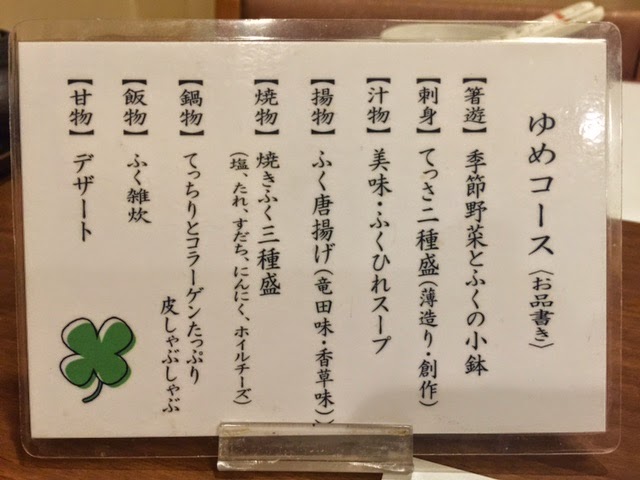 ゆめコース〈お品書き〉
【箸遊】季節野菜とふくの小鉢
【刺身】てっさ二種盛（薄造り・創作）
【汁物】美味・ふくひれスープ
【揚物】ふく唐揚げ（竜田味・香草味）
【焼物】焼きふく三種盛
（塩、たれ、すだち、にんにく、ホイルチーズ）
【鍋物】てっちりとコラーゲンたっぷり
皮しゃぶしゃぶ
【飯物】ふく雑炊
【甘物】デザート